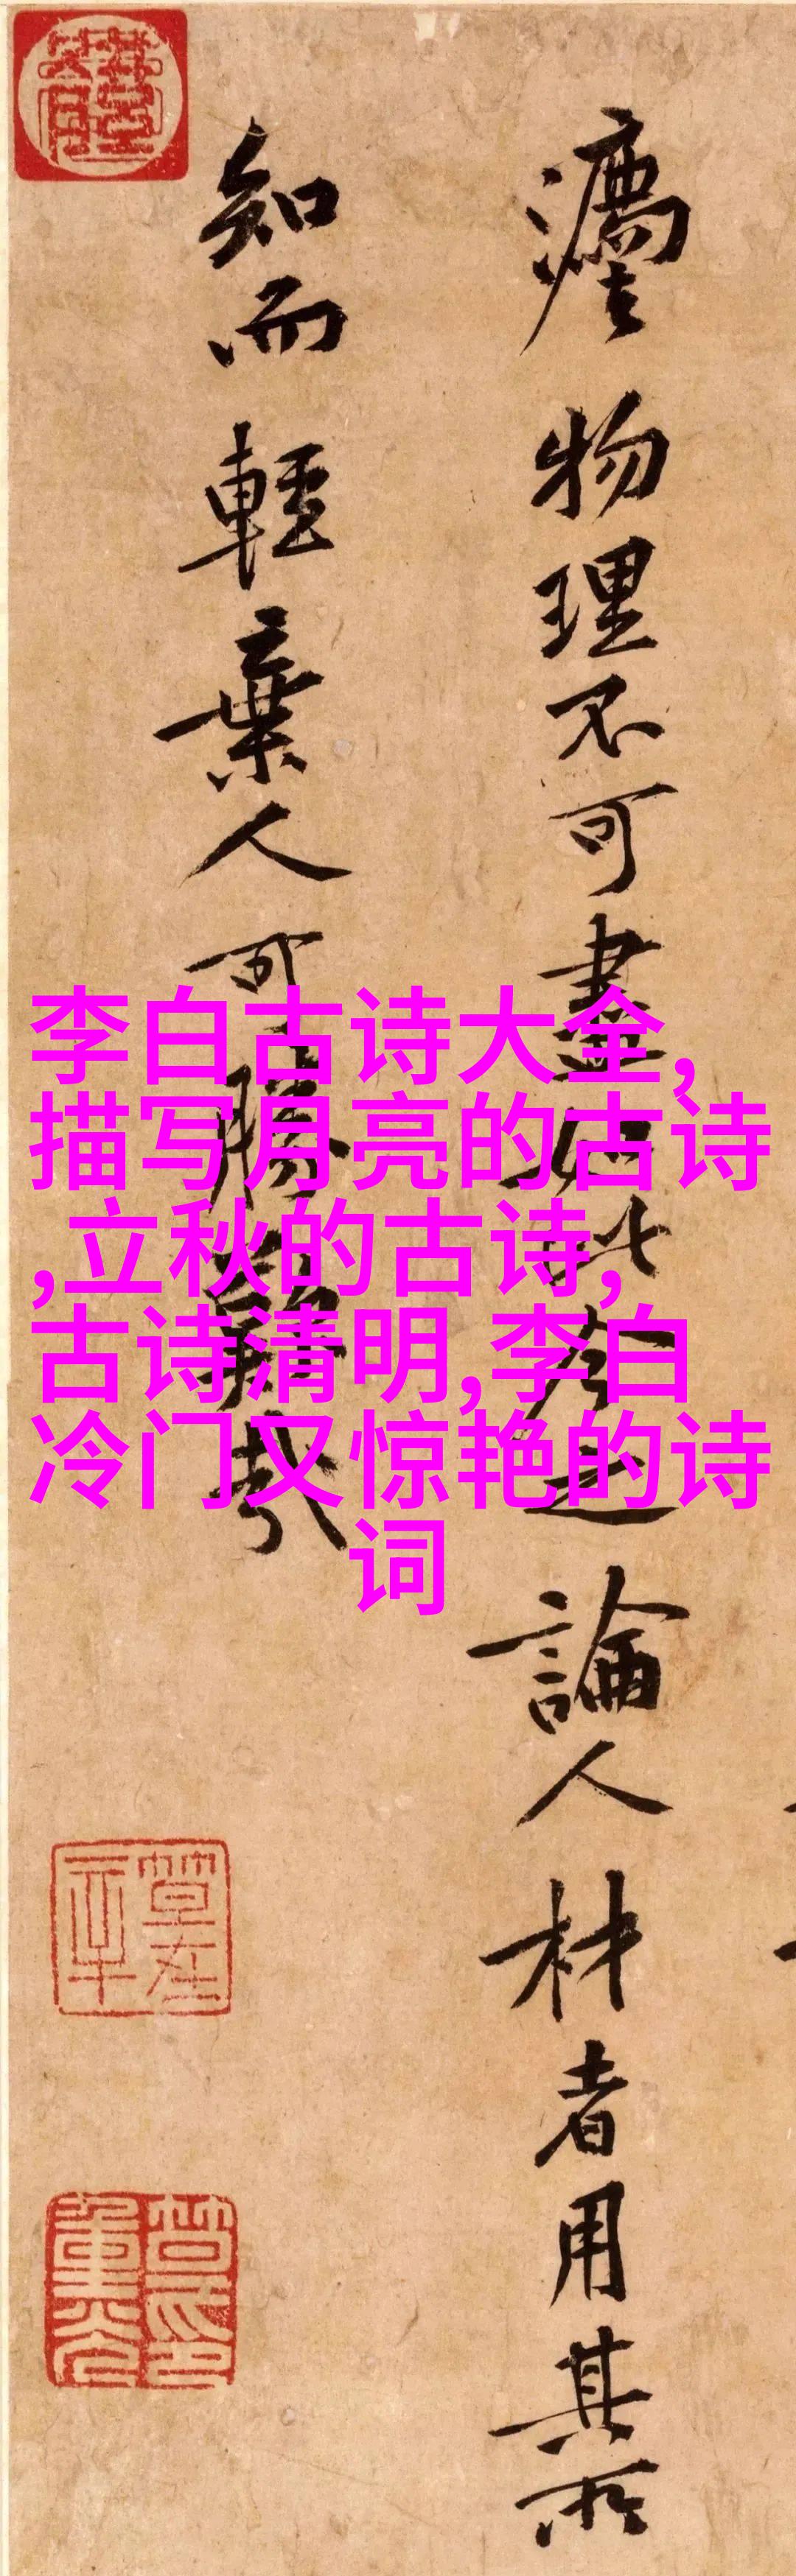 物理不可盡如此今之論人材者用其所
知而輕棄人可勝歎哉
李白古诗大全,
描写月亮的古诗
,立秋的古诗,
古诗清明,李白
冷门又惊艳的诗
词